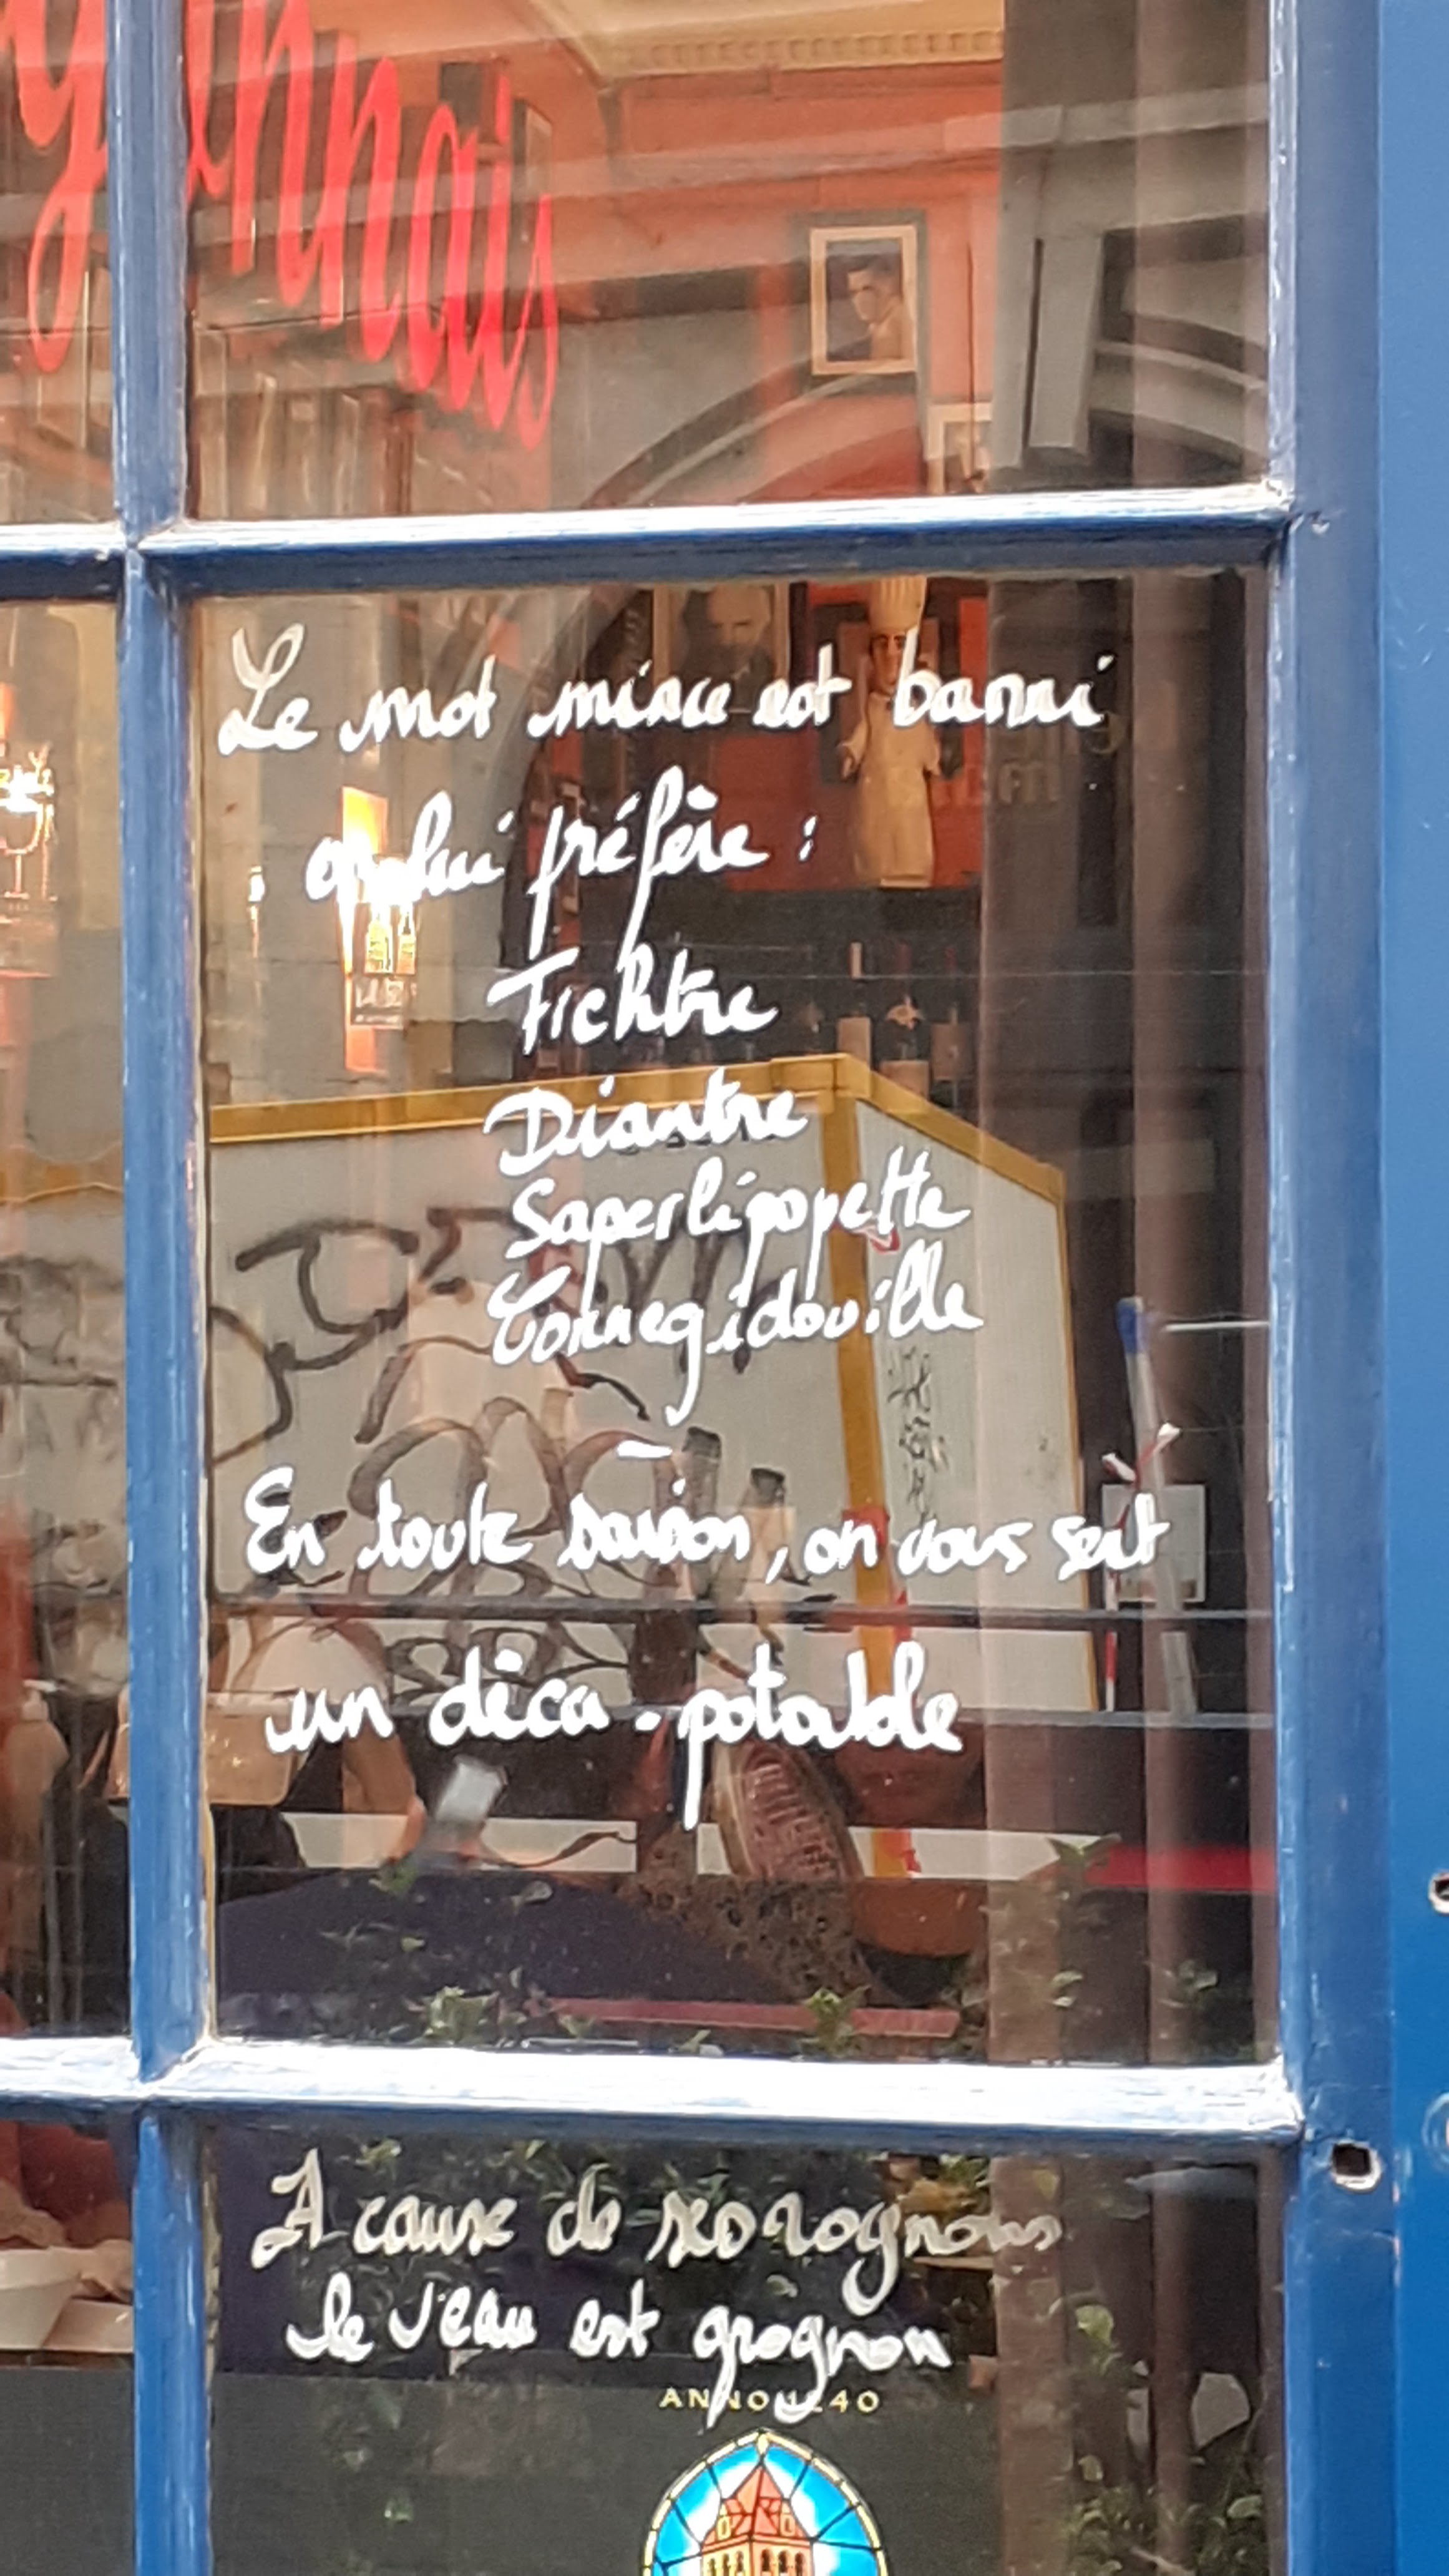 yonnais
Le mot mince est banni
on lui préfère :
Fichtre
Diantre
Saperlipopette
Cornegidouille
-
En toute saison, on vous sert
un déca - potable
A cause de ses rognons
le veau est grognon
ANNO 1240